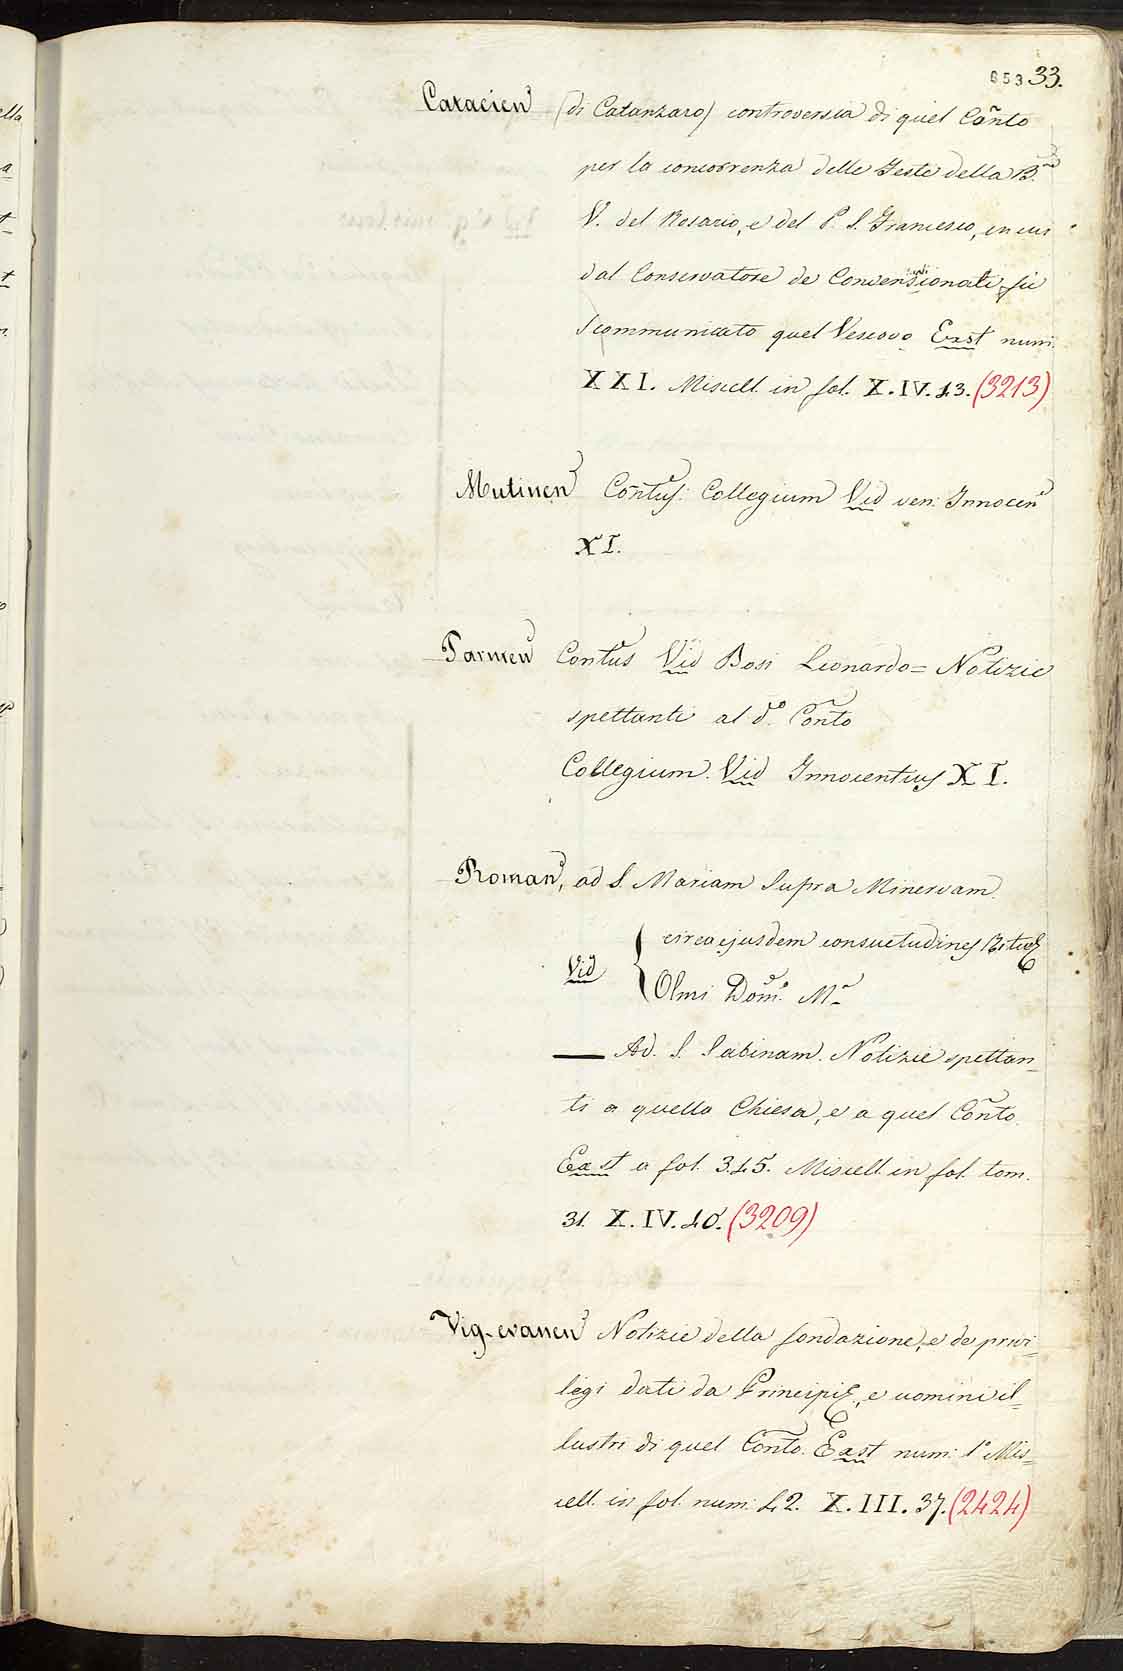 853 33.
Cataćien (di Catanzaro) controversia di quel Cõnto
per la concorrenza delle Feste della B.
V. del Rosario, e del P. S. Francesco, in cui
dal Conservatore de Convensionati fù
scommunicato quel Vescovo Exst num.
XXI. Miscell. in fol. X.IV.43. (3213)
Mutinen Contus: Collegium Vid ven: Innocen
XI.
Parmen Contus Vid Bosi Leonardo = Notizie
spettanti al dº. Cõnto
Collegium. Vid Innocentius XI.
Roman, ad S. Mariam Supra Minervam.
circa ejusdem consuetudines Ritus
Vid
Olmi Domº. Mª
— Ad. S. Sabinam. Notizie spettan=
ti a quella Chiesa, e a quel Cõnto.
Exst a fol. 345. Miscell. in fol. tom.
31. X.IV.40. (3209)
Vig-evanen Notizie della fondazione, e de privi=
legi dati da Principi, e uomini il=
lustri di quel Cõnto. Exst num: 1º Mis=
cell. in fol. num: 42. X.III.37. (2424)